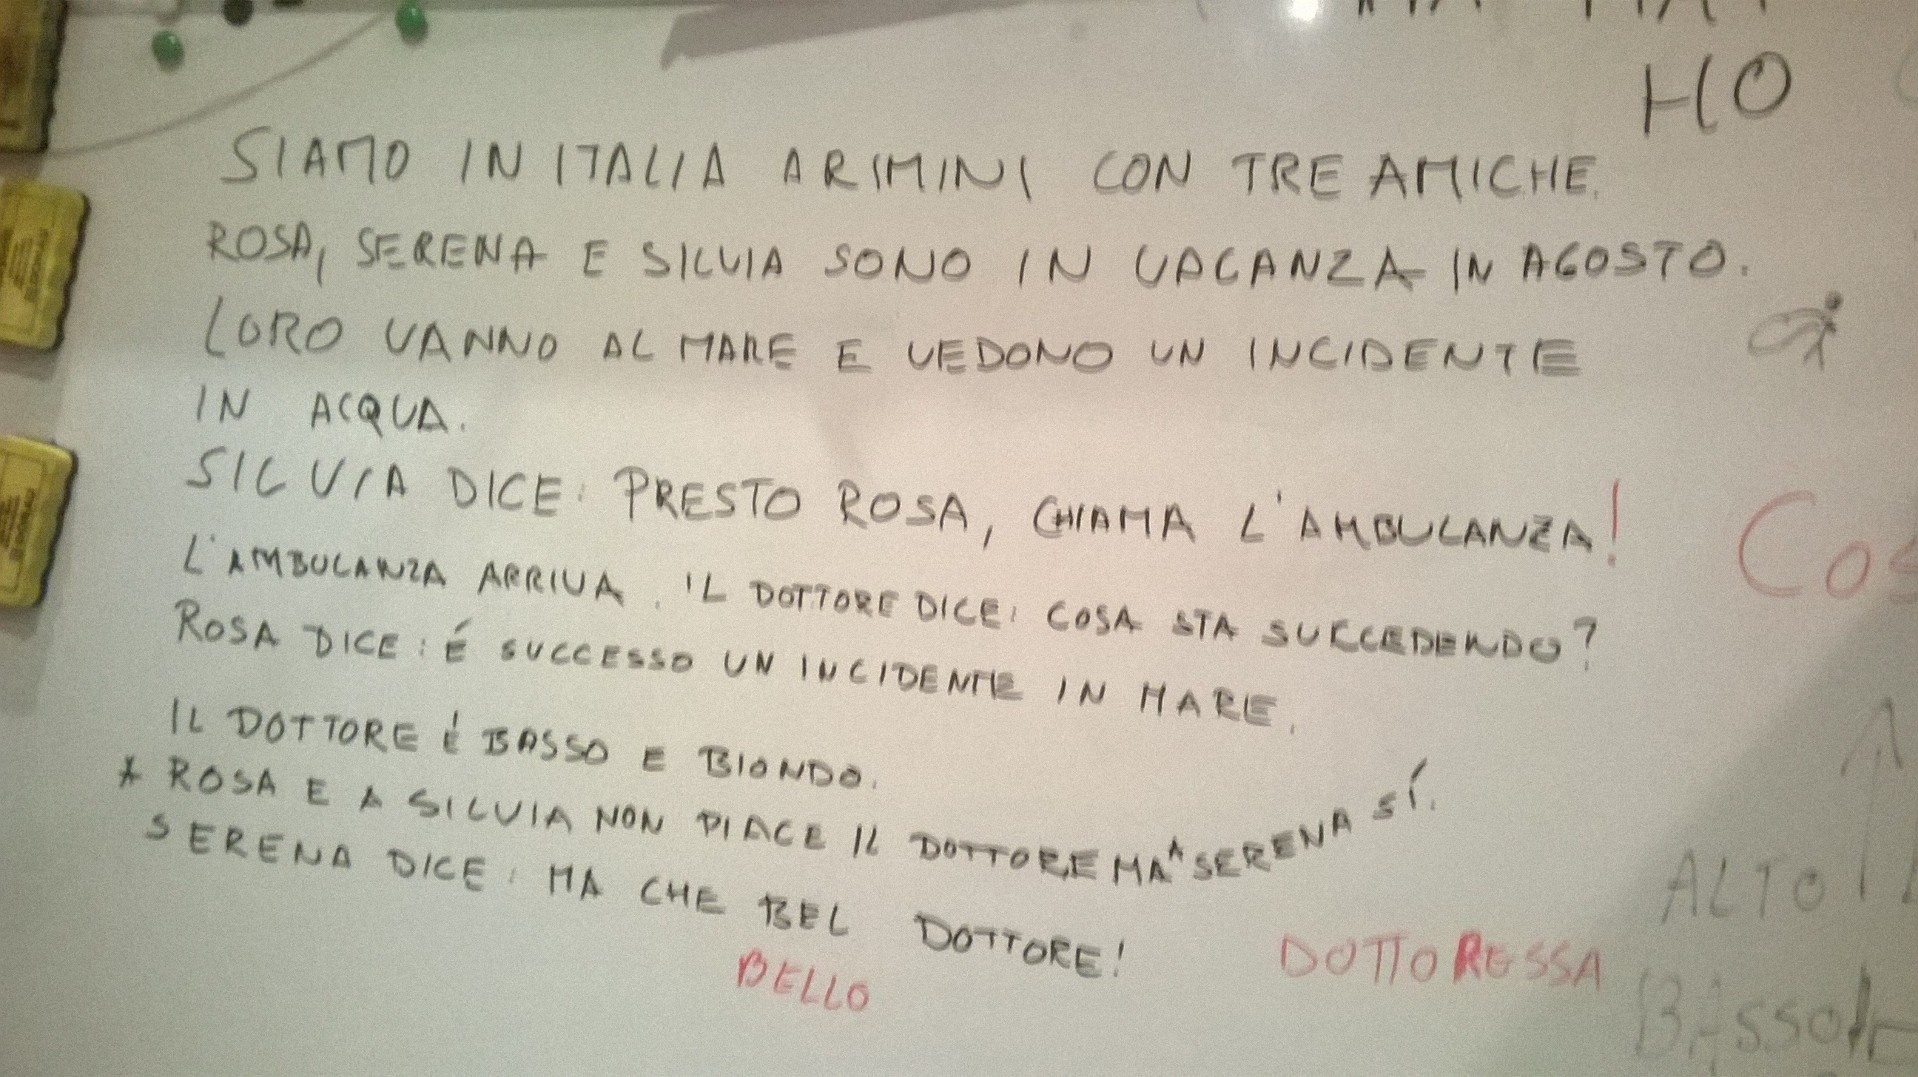 HO
SIAMO IN ITALIA A RIMINI CON TRE AMICHE.
ROSA, SERENA E SILVIA SONO IN VACANZA IN AGOSTO.
LORO VANNO AL MARE E VEDONO UN INCIDENTE
IN ACQUA.
SILVIA DICE: PRESTO ROSA, CHIAMA L'AMBULANZA!
L'AMBULANZA ARRIVA. IL DOTTORE DICE: COSA STA SUCCEDENDO?
ROSA DICE: É SUCCESSO UN INCIDENTE IN MARE.
IL DOTTORE É BASSO E BIONDO.
A ROSA E A SILVIA NON PIACE IL DOTTORE MA A SERENA SÍ.
SERENA DICE: MA CHE BEL DOTTORE!
BELLO
DOTTORESSA
ALTO
BASSO